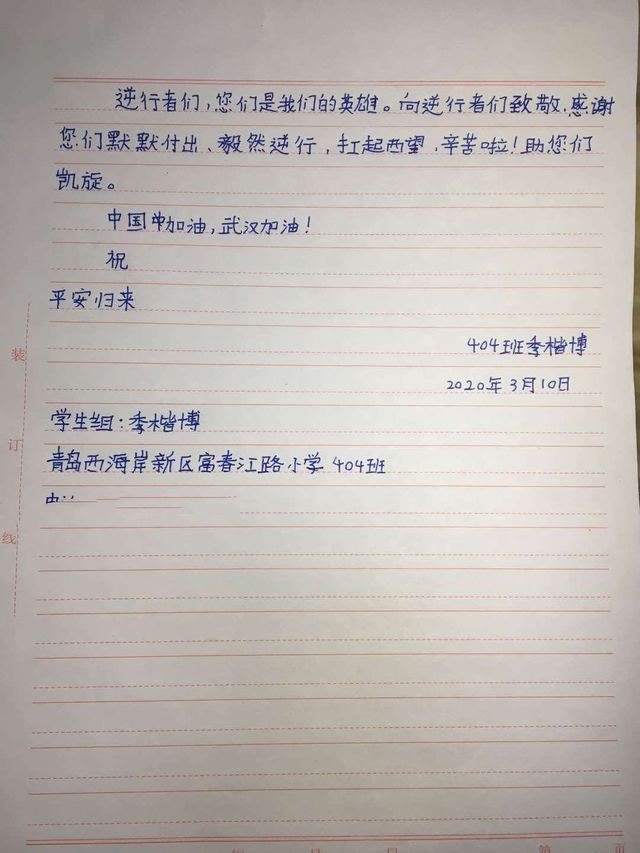 逆行者们,您们是我们的英雄。向逆行者们致敬.感谢
您们默默付出、毅然逆行,扛起西望,辛苦啦!助您们
凯旋。
中国加油,武汉加油!
祝
平安归来
404班季楷博
2020年3月10日
学生组:季楷博
青岛西海岸新区富春江路小学404班
装
订
线
年 月 日 第 页